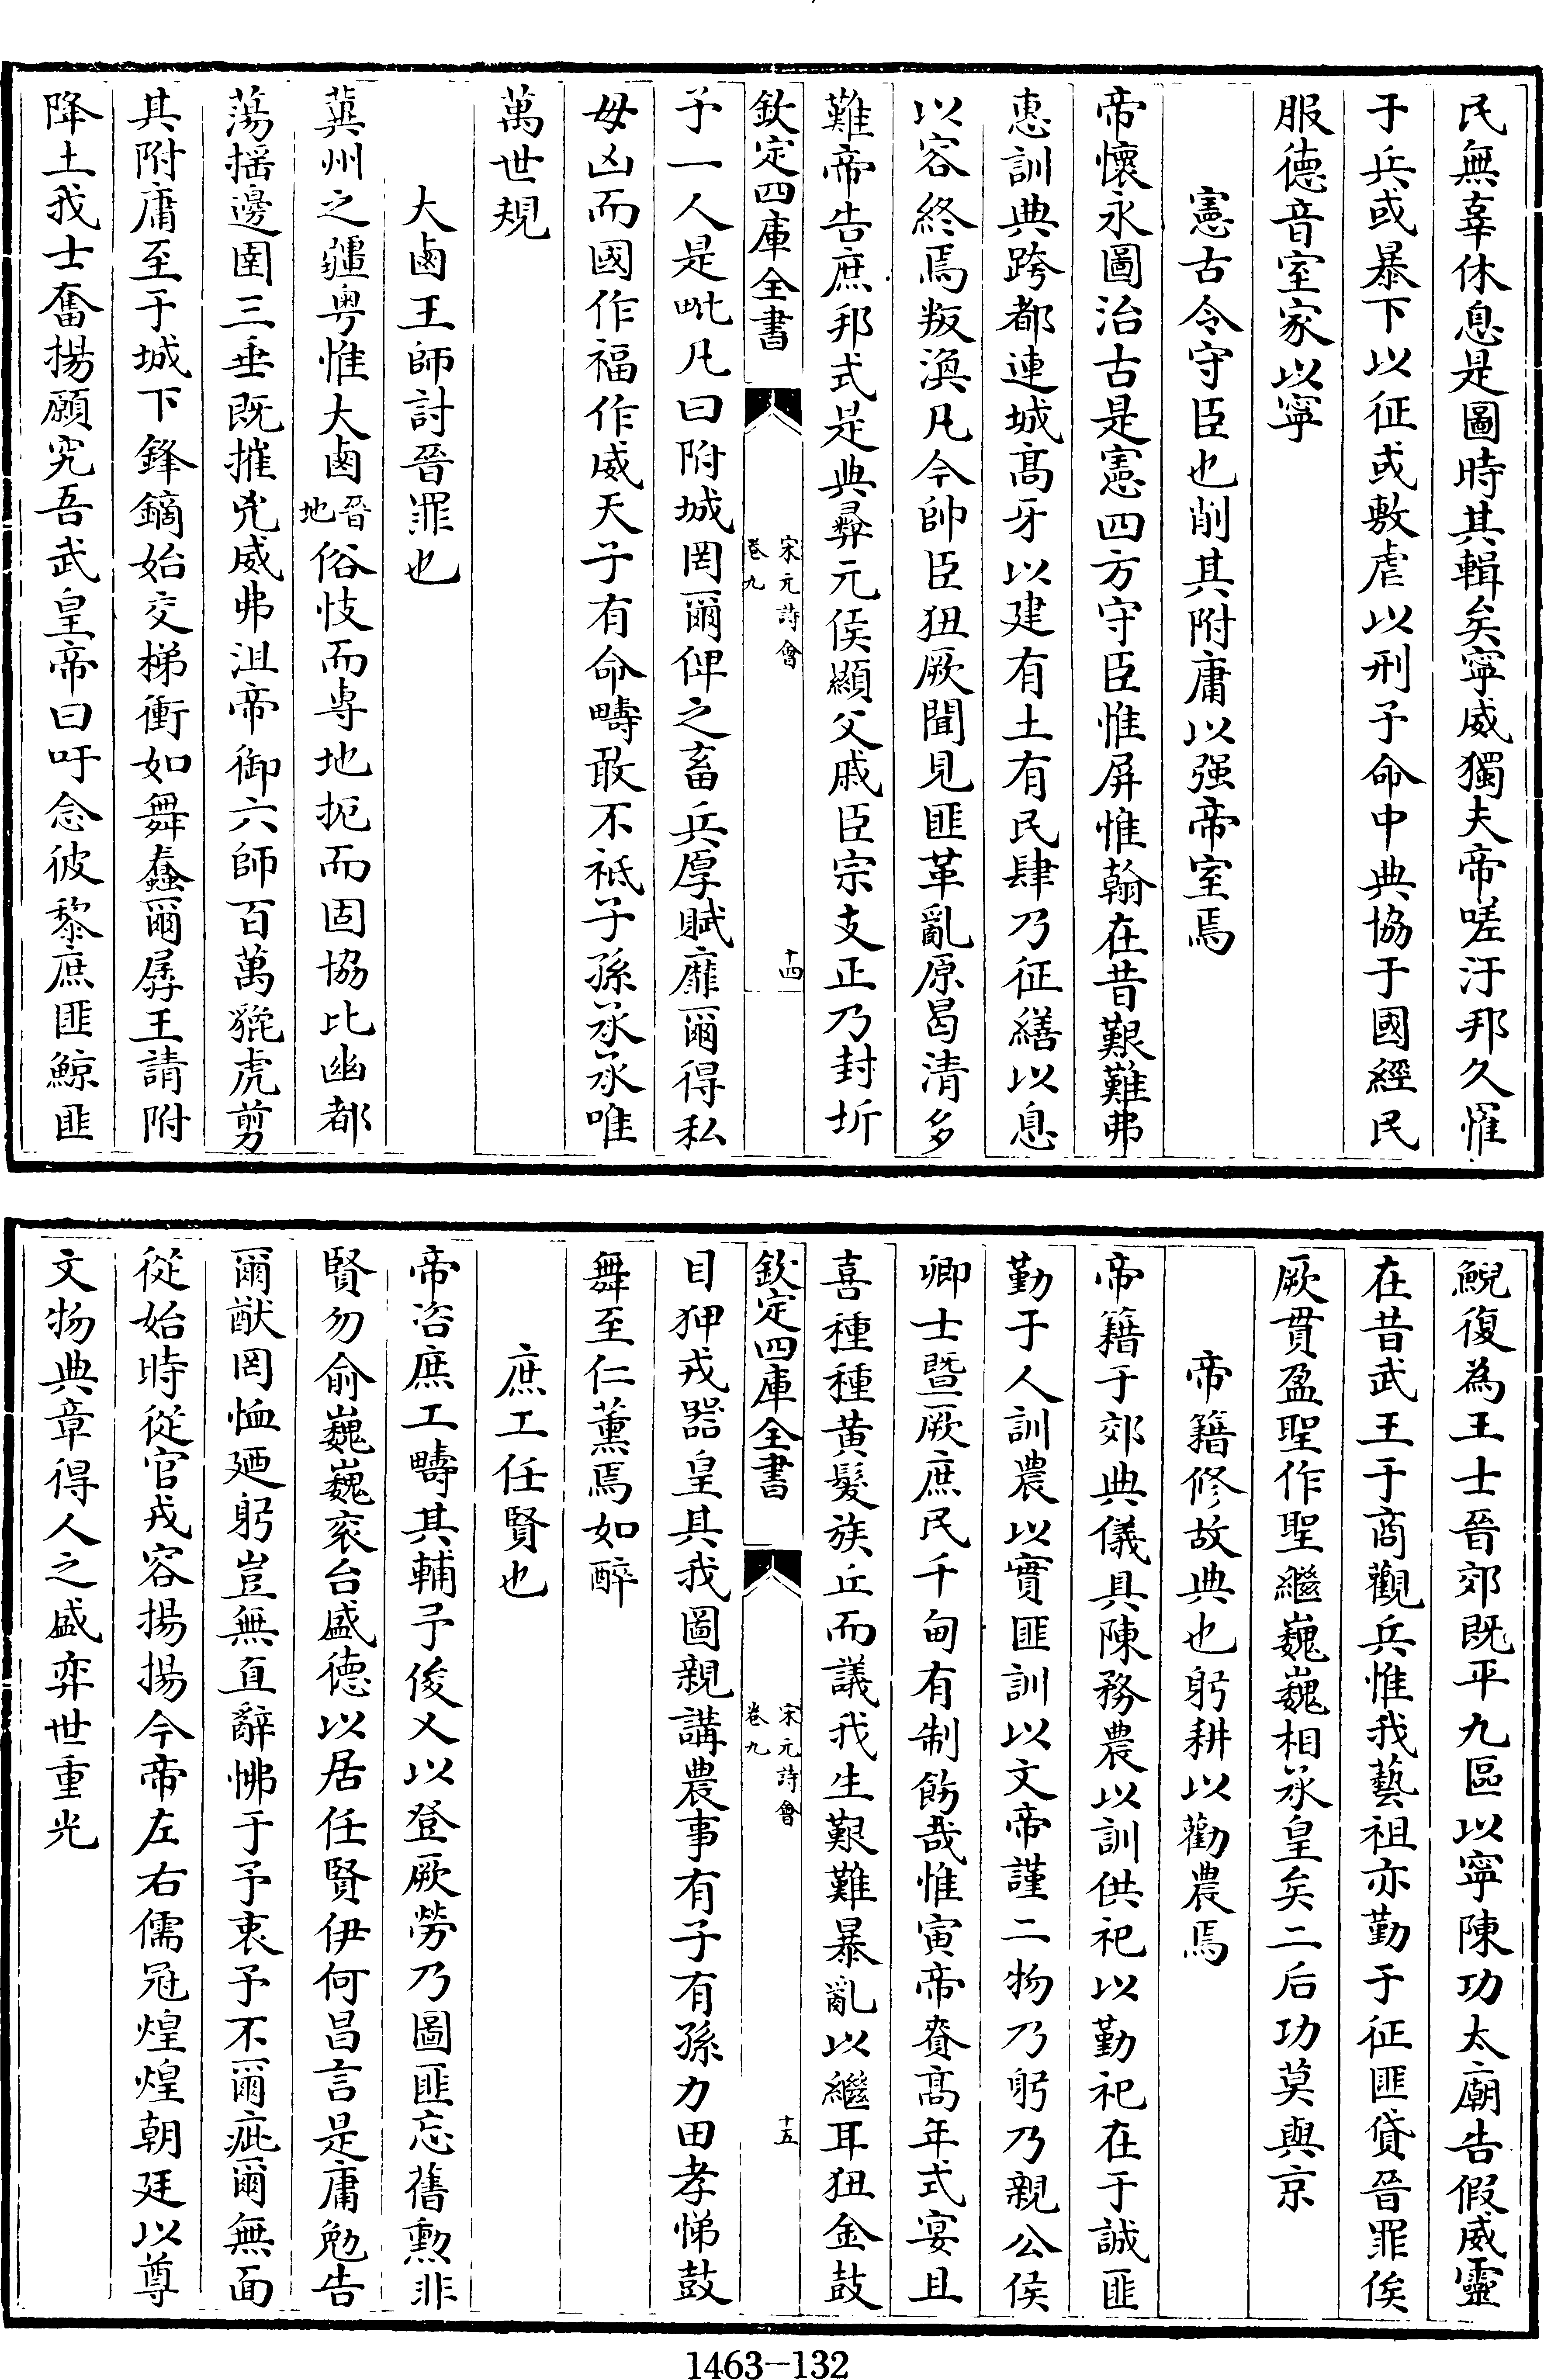 民無辜休息是圖時其輯矣寧威獨夫帝嗟汙邦久罹
于兵或暴下以征或敷虐以刑予命中典協于國經民
服德音室家以寧
憲古令守臣也削其附庸以强帝室焉
帝懷永圖治古是憲四方守臣惟屏惟翰在昔艱難弗
惠訓典跨都連城髙牙以建有土有民肆乃征繕以息
以容終焉叛渙凡今帥臣狃厥聞見匪革亂原曷清多
難帝告庶邦式是典彞元侯顯父戚臣宗支正乃封圻
欽定四庫全書
宋元詩會
卷九
十四
予一人是毗凡曰附城罔爾俾之畜兵厚賦靡爾得私
毋凶而國作福作威天子有命疇敢不祗子孫承承唯
萬世規
大鹵王師討晉罪也
冀州之疆粤惟大鹵晉地俗忮而専地扼而固協比幽都
蕩揺邊圉三垂既摧兇威弗沮帝御六師百萬貔虎剪
其附庸至于城下鋒鏑始交梯衝如舞蠢爾孱王請附
降土我士奮揚願究吾武皇帝曰吁念彼黎庶匪鯨匪
鯢復為王士晉郊既平九區以寧陳功太廟告假威靈
在昔武王于商觀兵惟我藝祖亦勤于征匪貸晉罪俟
厥貫盈聖作聖繼巍巍相承皇矣二后功莫與京
帝籍修故典也躬耕以勸農焉
帝籍于郊典儀具陳務農以訓供祀以勤祀在于誠匪
勤于人訓農以實匪訓以文帝謹二物乃躬乃親公侯
卿士暨厥庶民千甸有制飭哉惟寅帝賚髙年式宴且
喜種種黄髪族丘而議我生艱難暴亂以繼耳狃金鼓
欽定四庫全書
宋元詩會
卷九
十五
目狎戎器皇其我圖親講農事有子有孫力田孝悌鼓
舞至仁薰焉如醉
庶工任賢也
帝咨庶工疇其輔予俊乂以登厥勞乃圖匪忘舊勲非
賢勿俞巍巍衮台盛德以居任賢伊何昌言是庸勉告
爾猷罔恤廼躬豈無直辭怫于予衷予不爾疵爾無面
從始時從官戎容揚揚今帝左右儒冠煌煌朝廷以尊
文物典章得人之盛弈世重光
1463-132